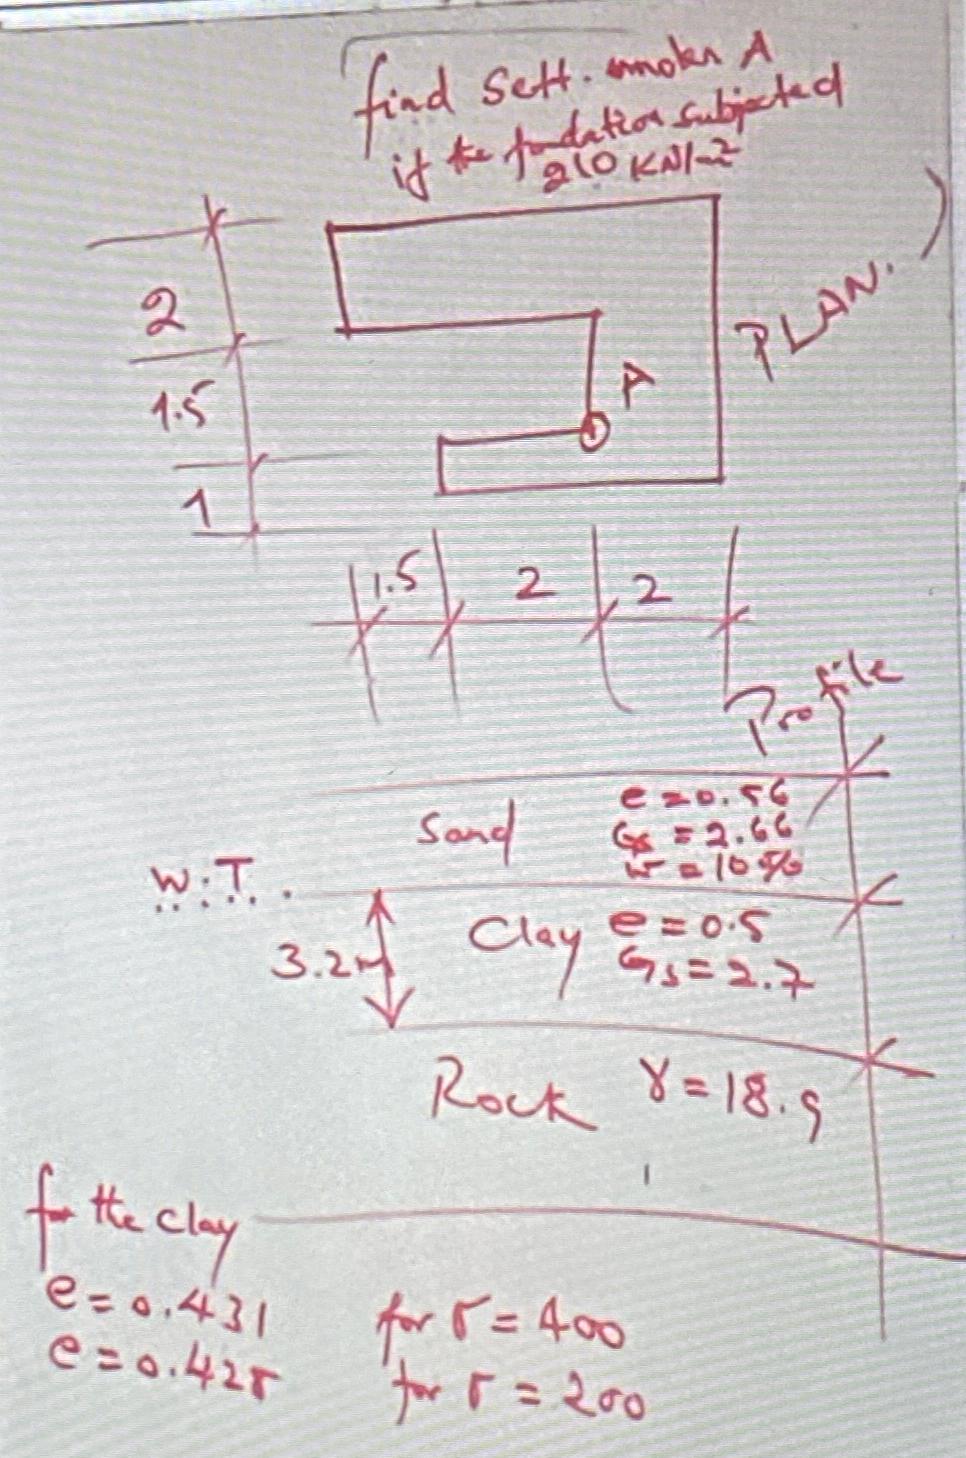 find Sett. under A
if the fondation subjected
210 KN/m²
2
1.5
1
A
PLAN.
1.5 2 2
Profile
Sand
e = 0.56
Gs = 2.66
w = 10%
W.T.
3.2m
Clay
e = 0.5
Gs = 2.7
Rock γ = 18.9
for the clay
e = 0.431 for σ = 400
e = 0.428 for σ = 200